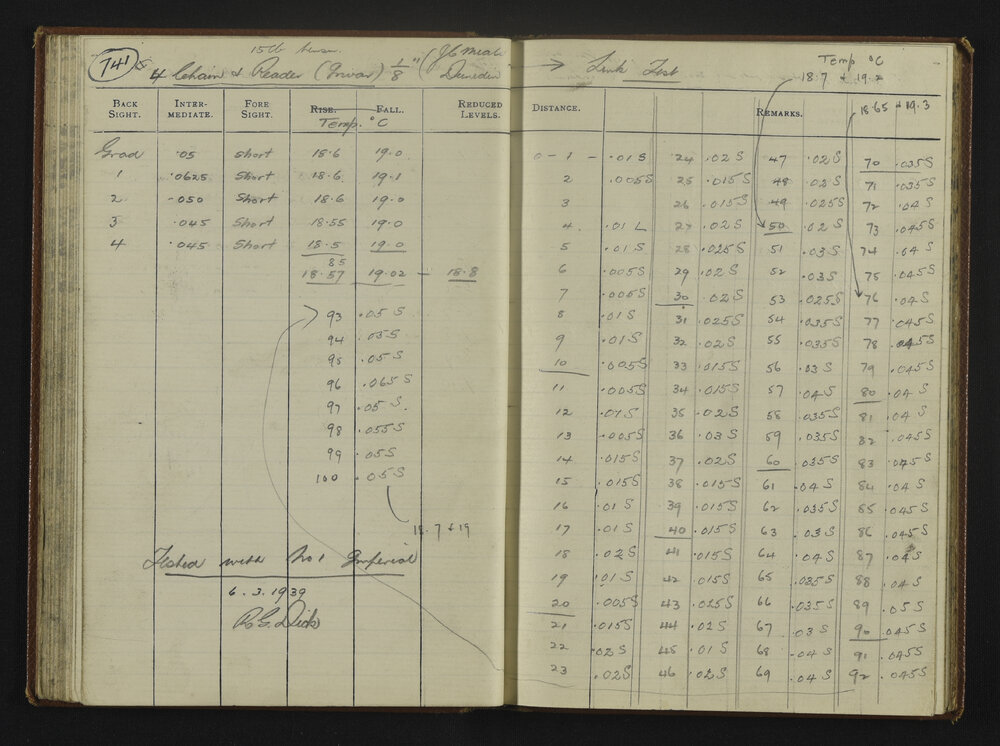 741
15 lb tension
4 Chain & Reader (Invar) 1/8" (J C Meak Dunedin
BACK SIGHT. INTER-MEDIATE. FORE SIGHT. RISE. FALL. REDUCED LEVELS.
Temp. °C
Grad .05 Short 18.6 19.0
1 .0625 Short 18.6 19.1
2 .050 Short 18.6 19.0
3 .045 Short 18.55 19.0
4 .045 Short 18.5 19.0
85
18.57 19.02 — 18.8
93 .05 S
94 .055 S
95 .05 S
96 .065 S
97 .05 S
98 .055 S
99 .05 S
100 .05 S
18.7 & 19
Tested with No 1 Imperial
6.3.1939
R.G. Dick
Link Test
Temp °C
18.7 & 19.2
18.65 & 19.3
DISTANCE. REMARKS.
0 - 1 - .01 S 24 .02 S 47 .02 S 70 .035 S
2 .005 S 25 .015 S 48 .02 S 71 .035 S
3 26 .015 S 49 .025 S 72 .04 S
4 .01 L 27 .02 S 50 .02 S 73 .045 S
5 .01 S 28 .025 S 51 .03 S 74 .04 S
6 .005 S 29 .02 S 52 .03 S 75 .045 S
7 .005 S 30 .02 S 53 .025 S 76 .04 S
8 .01 S 31 .025 S 54 .035 S 77 .045 S
9 .01 S 32 .02 S 55 .035 S 78 .045 S
10 .005 S 33 .015 S 56 .03 S 79 .045 S
11 .005 S 34 .015 S 57 .04 S 80 .04 S
12 .01 S 35 .02 S 58 .035 S 81 .04 S
13 .005 S 36 .03 S 59 .035 S 82 .045 S
14 .015 S 37 .02 S 60 .035 S 83 .045 S
15 .015 S 38 .015 S 61 .04 S 84 .04 S
16 .01 S 39 .015 S 62 .035 S 85 .045 S
17 .01 S 40 .015 S 63 .03 S 86 .045 S
18 .02 S 41 .015 S 64 .04 S 87 .04 S
19 .01 S 42 .015 S 65 .035 S 88 .04 S
20 .005 S 43 .025 S 66 .035 S 89 .05 S
21 .015 S 44 .02 S 67 .03 S 90 .045 S
22 .02 S 45 .01 S 68 .04 S 91 .045 S
23 .02 S 46 .02 S 69 .04 S 92 .045 S